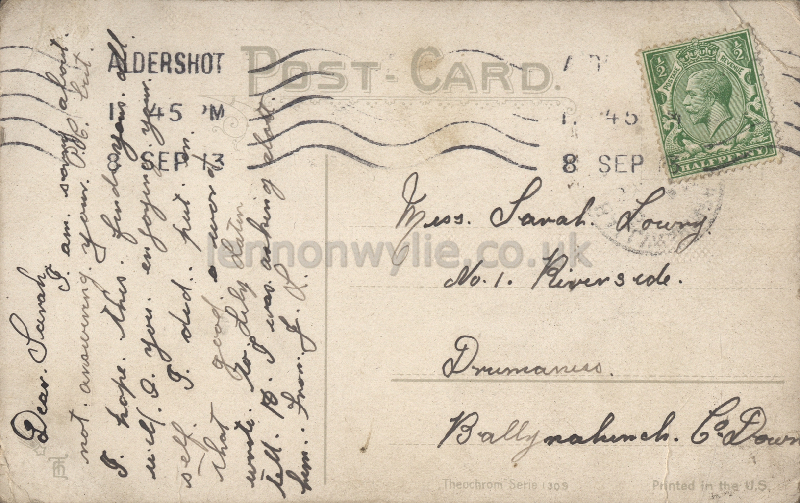 POST-CARD.
ALDERSHOT
45 PM
8 SEP 13
45
8 SEP
½ ½
POSTAGE REVENUE
HALFPENNY
Dear. Sarah
I. am. sorry about.
not. answering. your. P.C. but.
I. hope. this. finds. you. all.
well. & you. enjoying. your.
self. I. did. put. on.
that good a word
wrote. to. Lily
tell. I. was. asking. about
him.. from. J. L.
Miss. Sarah. Lowry.
No. 1. Riverside.
Drumaness.
Ballynahinch. Co Down
lennonwylie.co.uk
Theochrom Serie 1309
Printed in the U.S.